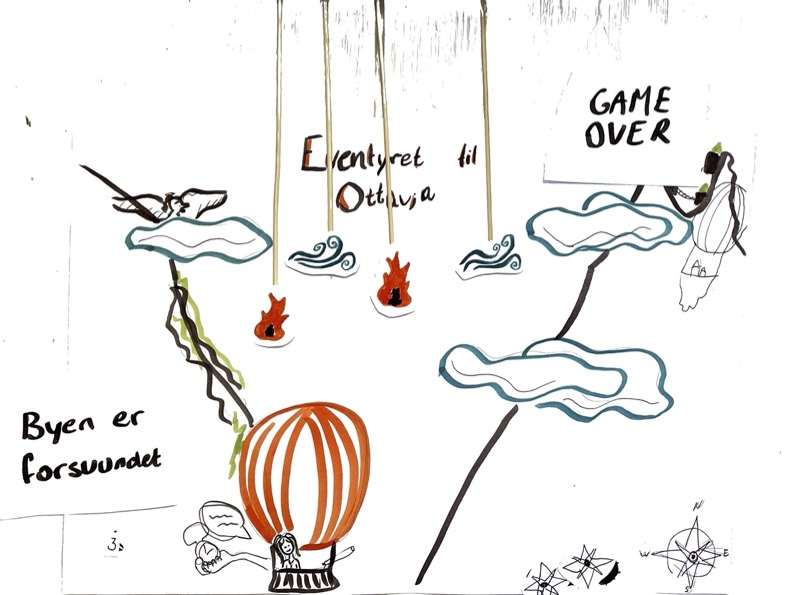 GAME
OVER
Eventyret til
Ottavja
Byen er
forsvundet
3:
N
W E
S